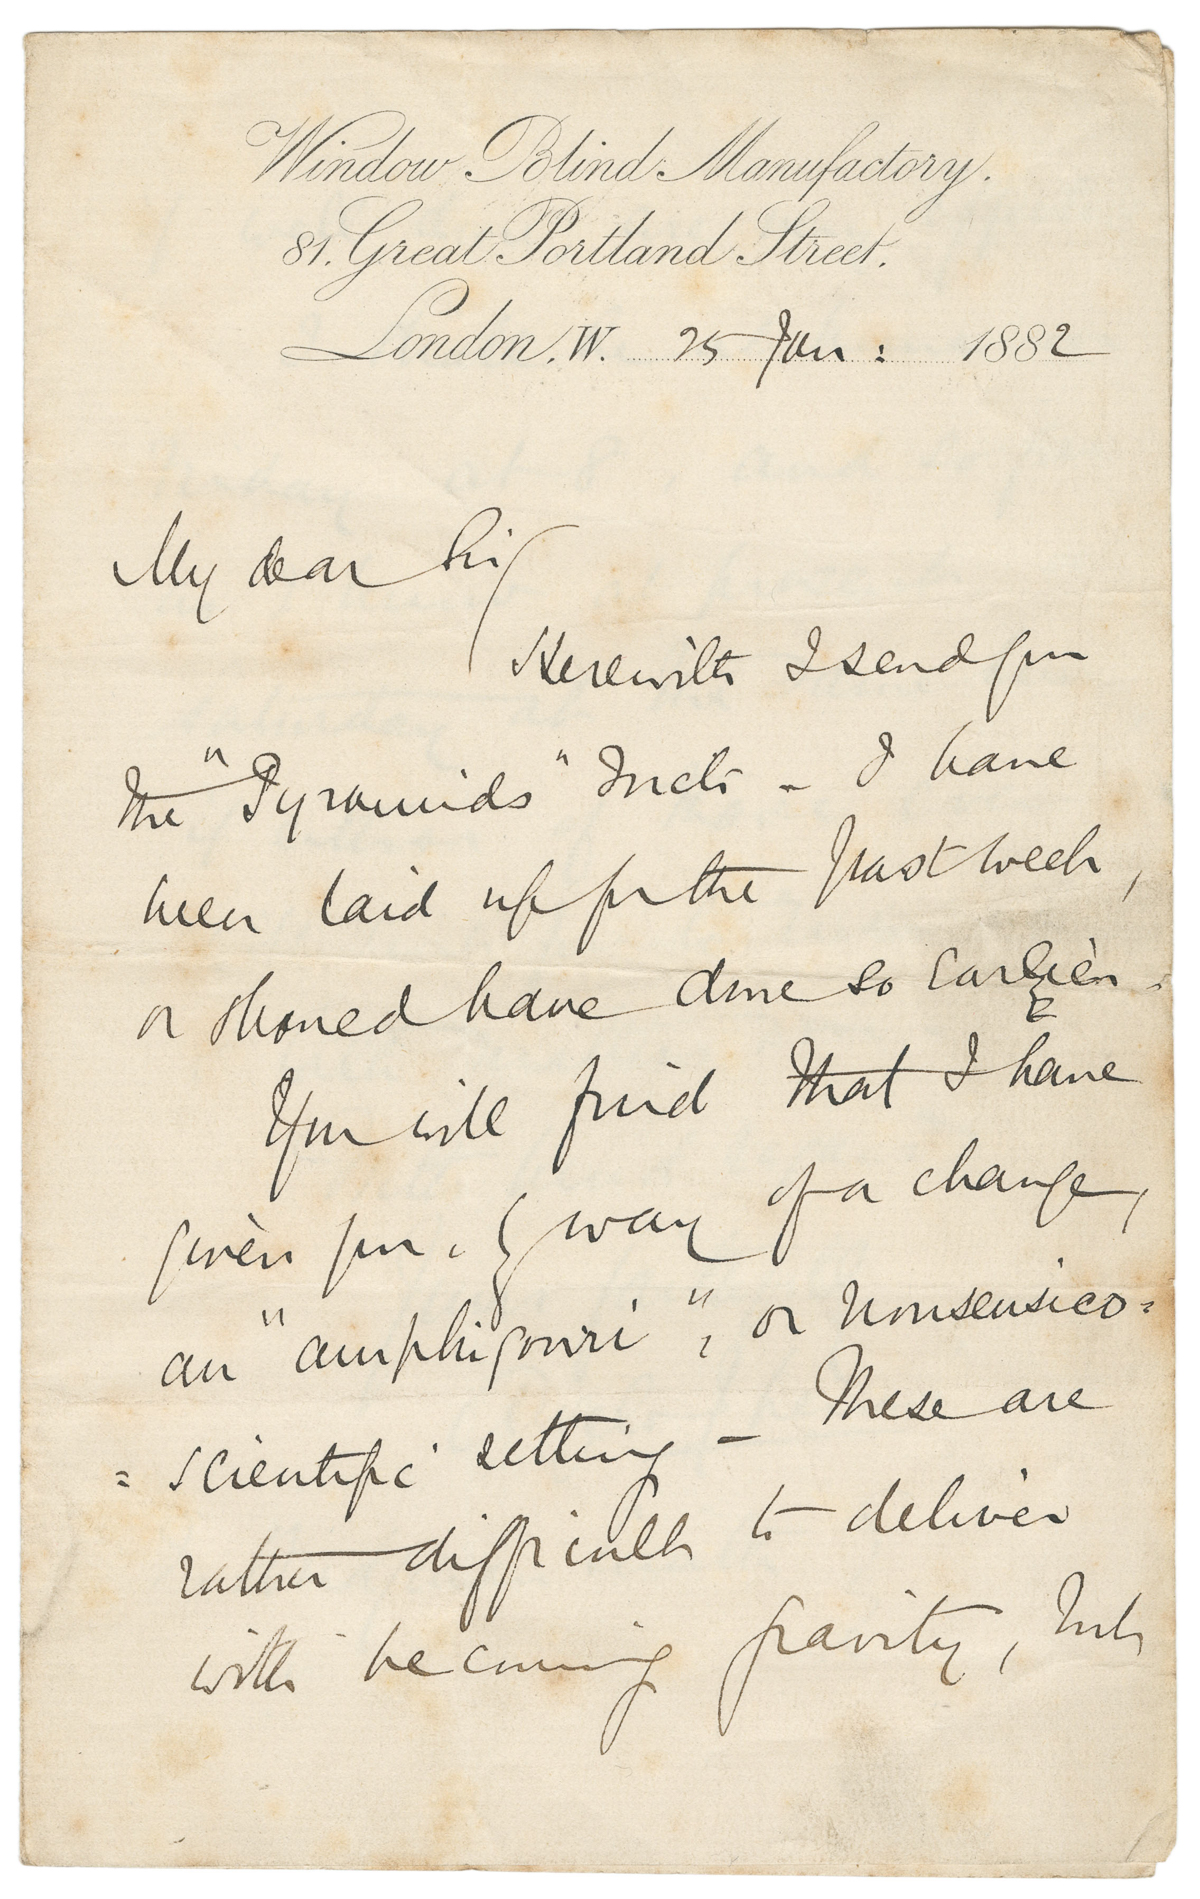 Window Blind Manufactory.
81. Great Portland Street.
London, W. 25 Jan: 1882
My dear Sir
Herewith I send you
the "Pyramids" Trick - I have
been laid up for the past week,
or should have done so earlier.
You will find that I have
given you, by way of a change,
an "amphigouri", or nonsensico=
=scientific setting - These are
rather difficult to deliver
with becoming gravity, but